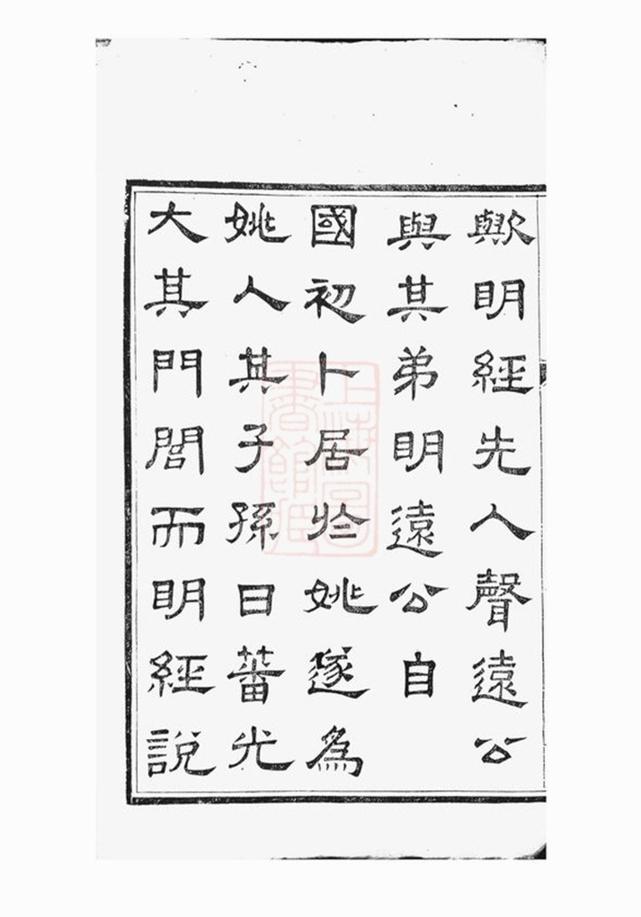 歟明經先人聲遠公
與其弟明遠公自
國初卜居於姚遂為
姚人其子孫日蕃光
大其門閭而明經說
上海圖書館藏